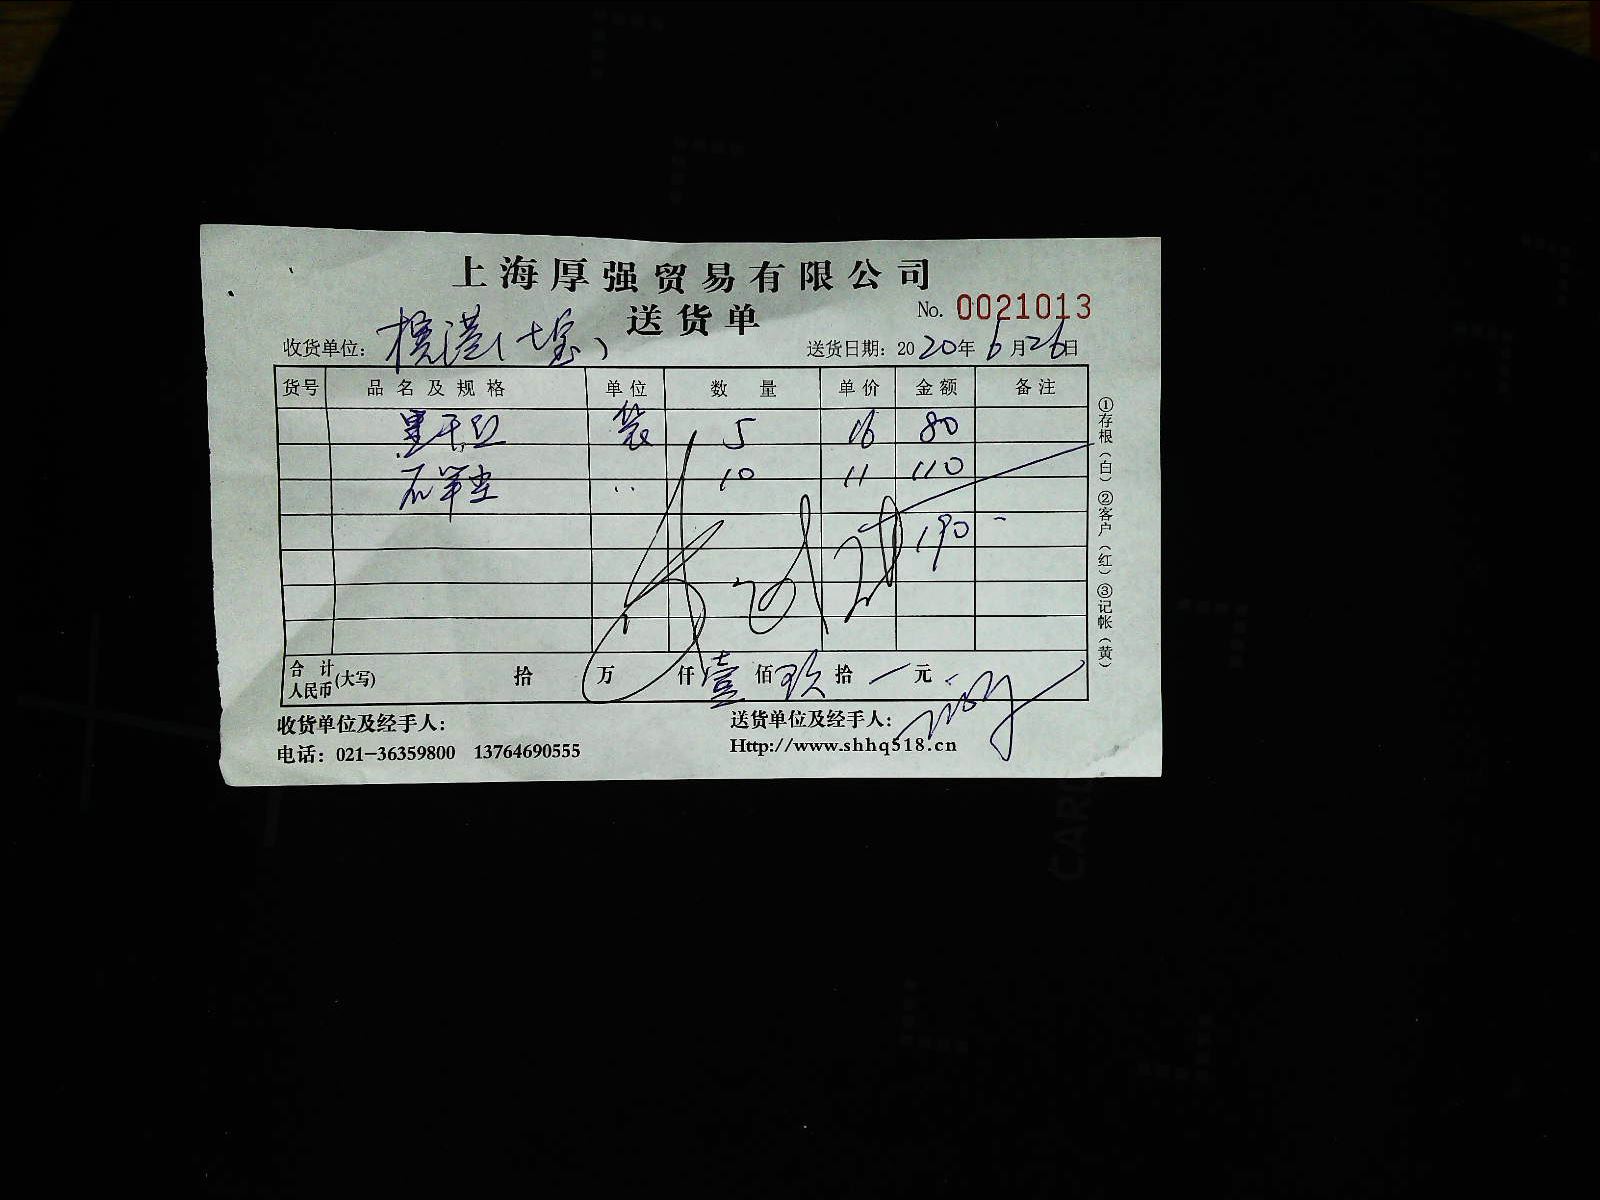 上海厚强贸易有限公司
送货单
No. 0021013
收货单位： 横港(七宝)
送货日期：2020年6月26日
货号 品名及规格 单位 数量 单价 金额 备注
黑干丝 袋 5 16 80
石笋尖 〃 10 11 110
190 -
合计人民币(大写) 拾 万 仟 壹 佰 玖 拾 一 元
收货单位及经手人：
送货单位及经手人：
电话：021-36359800 13764690555
Http://www.shhq518.cn
①存根(白)②客户(红)③记帐(黄)